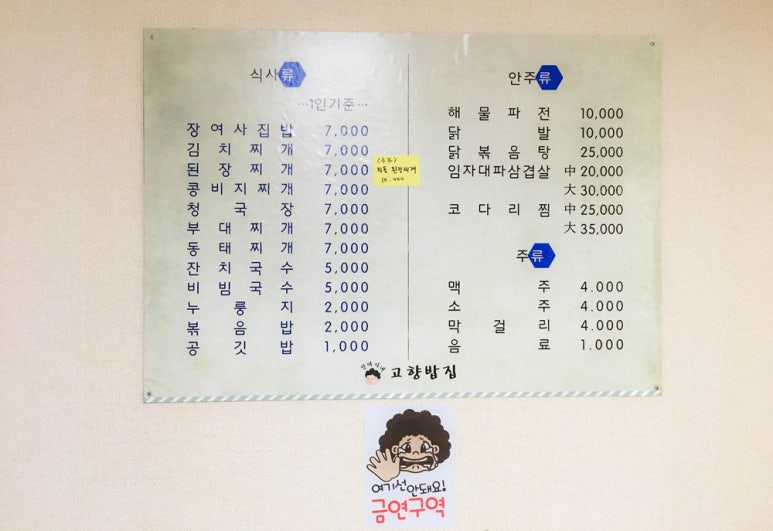 식사류
…1인기준…
장여사집밥 7,000
김치찌개 7,000
된장찌개 7,000
콩비지찌개 7,000
청국장 7,000
부대찌개 7,000
동태찌개 7,000
잔치국수 5,000
비빔국수 5,000
누룽지 2,000
볶음밥 2,000
공깃밥 1,000
(추가)
된장찌개
10.000
안주류
해물파전 10,000
닭발 10,000
닭볶음탕 25,000
임자대파삼겹살 中 20,000
大 30,000
코다리찜 中 25,000
大 35,000
주류
맥주 4.000
소주 4.000
막걸리 4.000
음료 1.000
고향밥집
여기선 안돼요!
금연구역